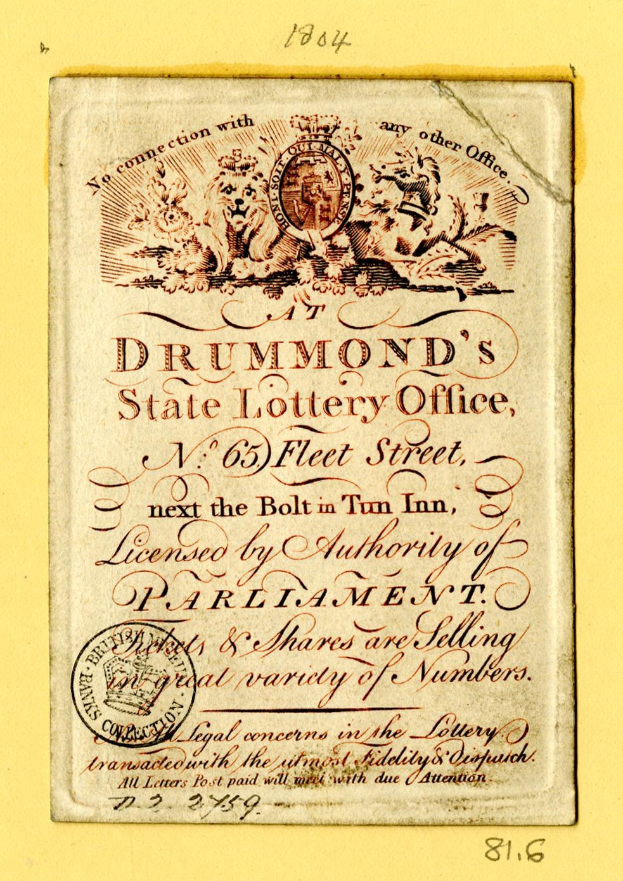 1804
No connection with any other Office.
HONI·SOIT·QUI·MAL·Y·PENSE
AT
DRUMMOND's
State Lottery Office,
No. 65) Fleet Street,
next the Bolt in Tun Inn,
Licensed by Authority of
PARLIAMENT.
Tickets & Shares are Selling
in great variety of Numbers.
All Legal concerns in the Lottery
transacted with the utmost Fidelity & Dispatch.
All Letters Post paid will meet with due Attention.
BRITISH MUSEUM
BANKS COLLECTION
D.2.2759.
81.6